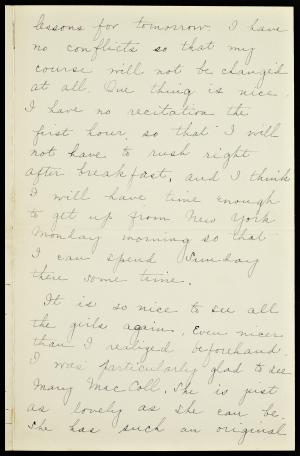 lessons for tomorrow. I have
no conflicts so that my
course will not be changed
at all. One thing is nice.
I have no recitation the
first hour, so that I will
not have to rush right
after breakfast, and I think
I will have time enough
to get up from New York
Monday morning so that
I can spend Sunday
there some time.
It is so nice to see all
the girls again. Even nicer
than I realized beforehand.
I was particularly glad to see
Mary MacColl. She is just
as lovely as she can be.
She has such an original